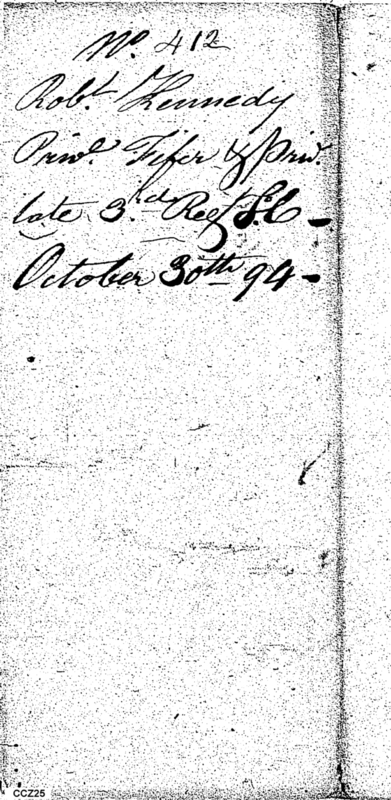 No. 412
Robt. Kennedy
Privt. Fifer & Privt.
late 3rd Regt S.C -
October 30th 94 -
CCZ25